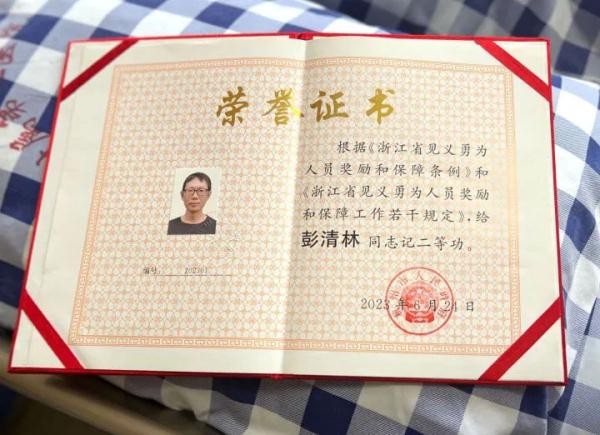 荣誉证书
根据《浙江省见义勇为
人员奖励和保障条例》和
《浙江省见义勇为人员奖励
和保障工作若干规定》,给
彭清林 同志记二等功。
2023年6月24日
编号: 202301